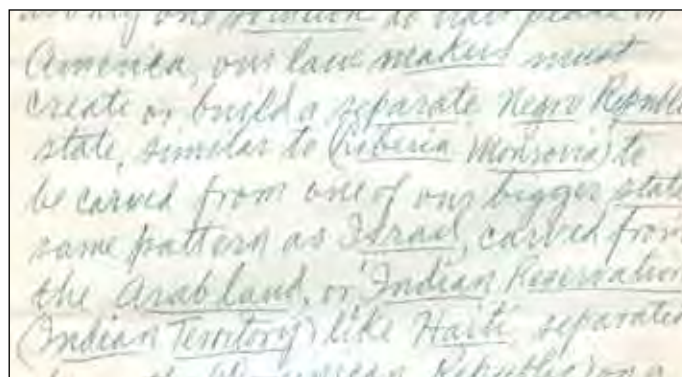 only one solution to have peace in
America, our law makers must
create or build a separate Negro Republi
state, similar to (Liberia Monrovia) to
be carved from one of our bigger state
same pattern as Israel, carved from
the Arab land, or Indian Reservation
(Indian Territory) like Haiti separated
Republic on a